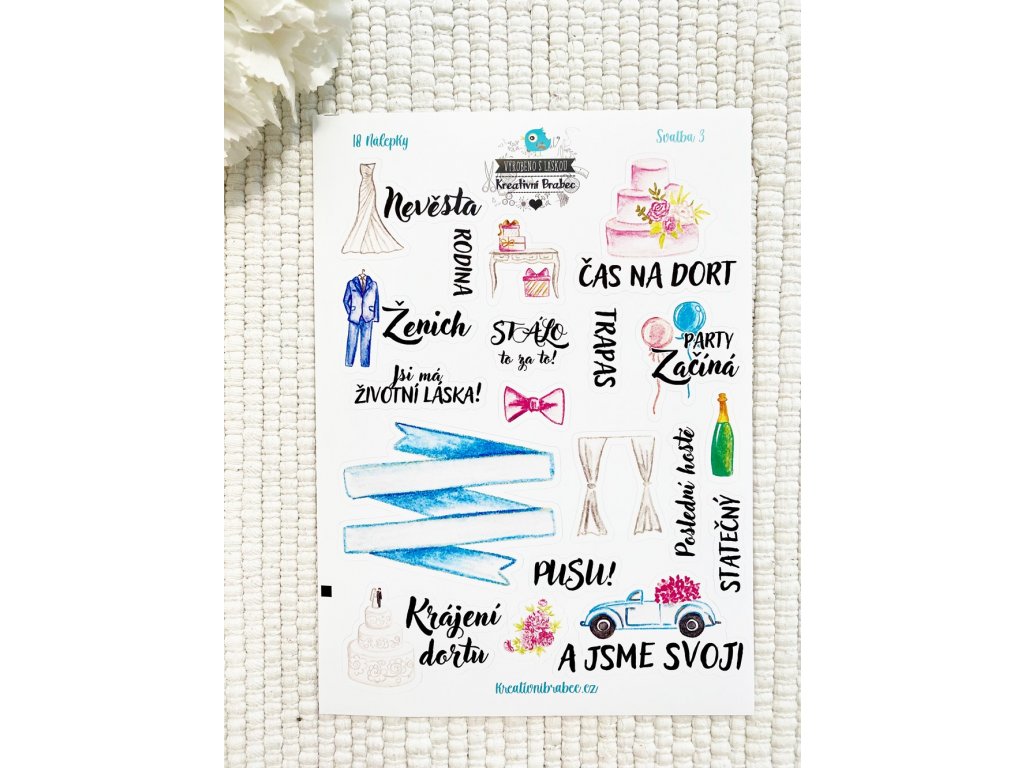 18 Nálepky
Svatba 3
VYROBENO S LÁSKOU
Kreativní Brabec
Nevěsta
RODINA
ČAS NA DORT
Ženich
STÁLO
to za to!
TRAPAS
PÁRTY
Začíná
Jsi má
ŽIVOTNÍ LÁSKA!
Poslední hosté
STATEČNÝ
PUSU!
Krájení
dortu
A JSME SVOJI
Kreativnibrabec.cz